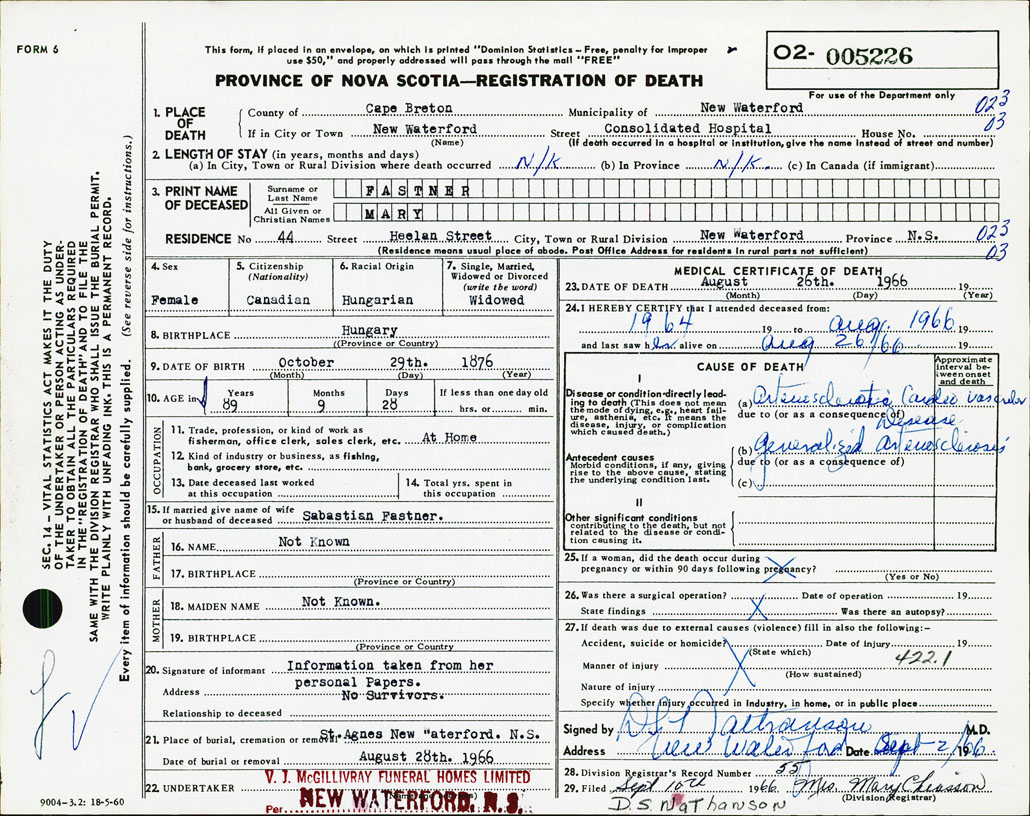 FORM 6
This form, if placed in an envelope, on which is printed "Dominion Statistics – Free, penalty for improper
use $50," and properly addressed will pass through the mail "FREE"
PROVINCE OF NOVA SCOTIA—REGISTRATION OF DEATH
02- 005226
For use of the Department only
1. PLACE OF DEATH
County of Cape Breton Municipality of New Waterford 023
If in City or Town New Waterford Street Consolidated Hospital House No. 03
(Name) (If death occurred in a hospital or institution, give the name instead of street and number)
2. LENGTH OF STAY (in years, months and days)
(a) In City, Town or Rural Division where death occurred N/K (b) In Province N/K (c) In Canada (if immigrant)
3. PRINT NAME OF DECEASED
Surname or Last Name FASTNER
All Given or Christian Names MARY
RESIDENCE No 44 Street Heelan Street City, Town or Rural Division New Waterford Province N.S. 023
(Residence means usual place of abode. Post Office Address for residents in rural parts not sufficient) 03
4. Sex
Female
5. Citizenship
(Nationality)
Canadian
6. Racial Origin
Hungarian
7. Single, Married,
Widowed or Divorced
(write the word)
Widowed
8. BIRTHPLACE Hungary
((Province or Country)
9. DATE OF BIRTH October 29th. 1876
(Month) (Day) (Year)
10. AGE in
Years Months Days If less than one day old
89 9 28 hrs. or min.
OCCUPATION
11. Trade, profession, or kind of work as
fisherman, office clerk, sales clerk, etc. At Home
12. Kind of industry or business, as fishing,
bank, grocery store, etc.
13. Date deceased last worked
at this occupation
14. Total yrs. spent in
this occupation
15. If married give name of wife
or husband of deceased Sabastian Fastner.
FATHER
16. NAME Not Known
17. BIRTHPLACE
(Province or Country)
MOTHER
18. MAIDEN NAME Not Known.
19. BIRTHPLACE
(Province or Country
20. Signature of informant Information taken from her
personal Papers.
Address No Survivors.
Relationship to deceased
21. Place of burial, cremation or removal St. Agnes New "aterford. N.S.
Date of burial or removal August 28th. 1966
22. UNDERTAKER V. J. McGILLIVRAY FUNERAL HOMES LIMITED
NEW WATERFORD, N. S.
Per
MEDICAL CERTIFICATE OF DEATH
23. DATE OF DEATH August 26th. 1966 19
(Month) (Day) (Year)
24. I HEREBY CERTIFY that I attended deceased from:
1964 19 to Aug. 1966 19
and last saw her alive on Aug 26/66 19
CAUSE OF DEATH
Approximate
interval be-
tween onset
and death
I
Disease or condition directly lead-
ing to death (This does not mean
the mode of dying, e.g., heart fail-
ure, asthenia, etc. It means the
disease, injury, or complication
which caused death.)
(a) Arteriosclerotic Cardio vascular
due to (or as a consequence of)
Disease
(b) Generalized Arteriosclerosis
due to (or as a consequence of)
(c)
Antecedent causes
Morbid conditions, if any, giving
rise to the above cause, stating
the underlying condition last.
II
Other significant conditions
contributing to the death, but not
related to the disease or condi-
tion causing it.
25. If a woman, did the death occur during
pregnancy or within 90 days following pregnancy?
(Yes or No)
26. Was there a surgical operation? Date of operation 19
State findings X Was there an autopsy?
27. If death was due to external causes (violence) fill in also the following:—
Accident, suicide or homicide? Date of injury 19
(State which) 422.1
Manner of injury
(How sustained)
Nature of injury
Specify whether injury occurred in Industry, in home, or in public place
Signed by D S Nathanson M.D.
Address New Waterford Date Sept 2/ 1966
28. Division Registrar's Record Number 55
29. Filed Sept 10th 1966 Mrs Mary Chiasson
(Division Registrar)
D.S. NATHANSON
SEC. 14 – VITAL STATISTICS ACT MAKES IT THE DUTY
OF THE UNDERTAKER OR PERSON ACTING AS UNDER-
TAKER TO OBTAIN ALL THE PARTICULARS REQUIRED
IN THE "REGISTRATION OF DEATH" AND TO FILE THE
SAME WITH THE DIVISION REGISTRAR WHO SHALL ISSUE THE BURIAL PERMIT.
WRITE PLAINLY WITH UNFADING INK. THIS IS A PERMANENT RECORD.
Every item of information should be carefully supplied. (See reverse side for instructions.)
9004-3.2: 18-5-60